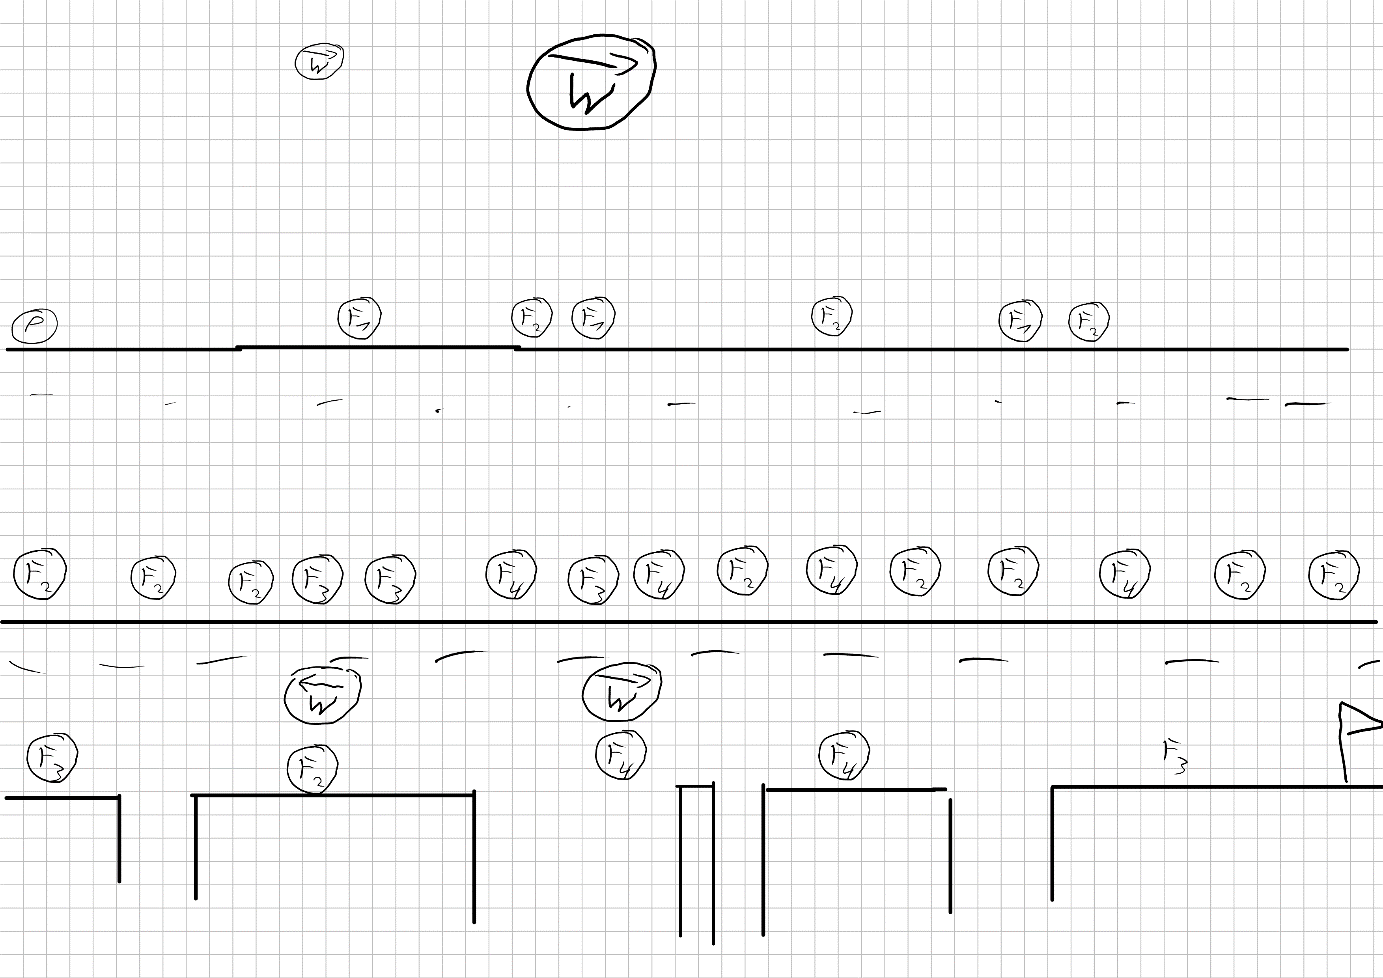 W W
P F₁ F₂ F₁ F₂ F₁ F₂
F₂ F₂ F₂ F₃ F₃ F₄ F₃ F₄ F₂ F₄ F₂ F₂ F₄ F₂ F₂
W W
F₃ F₂ F₄ F₄ F₃